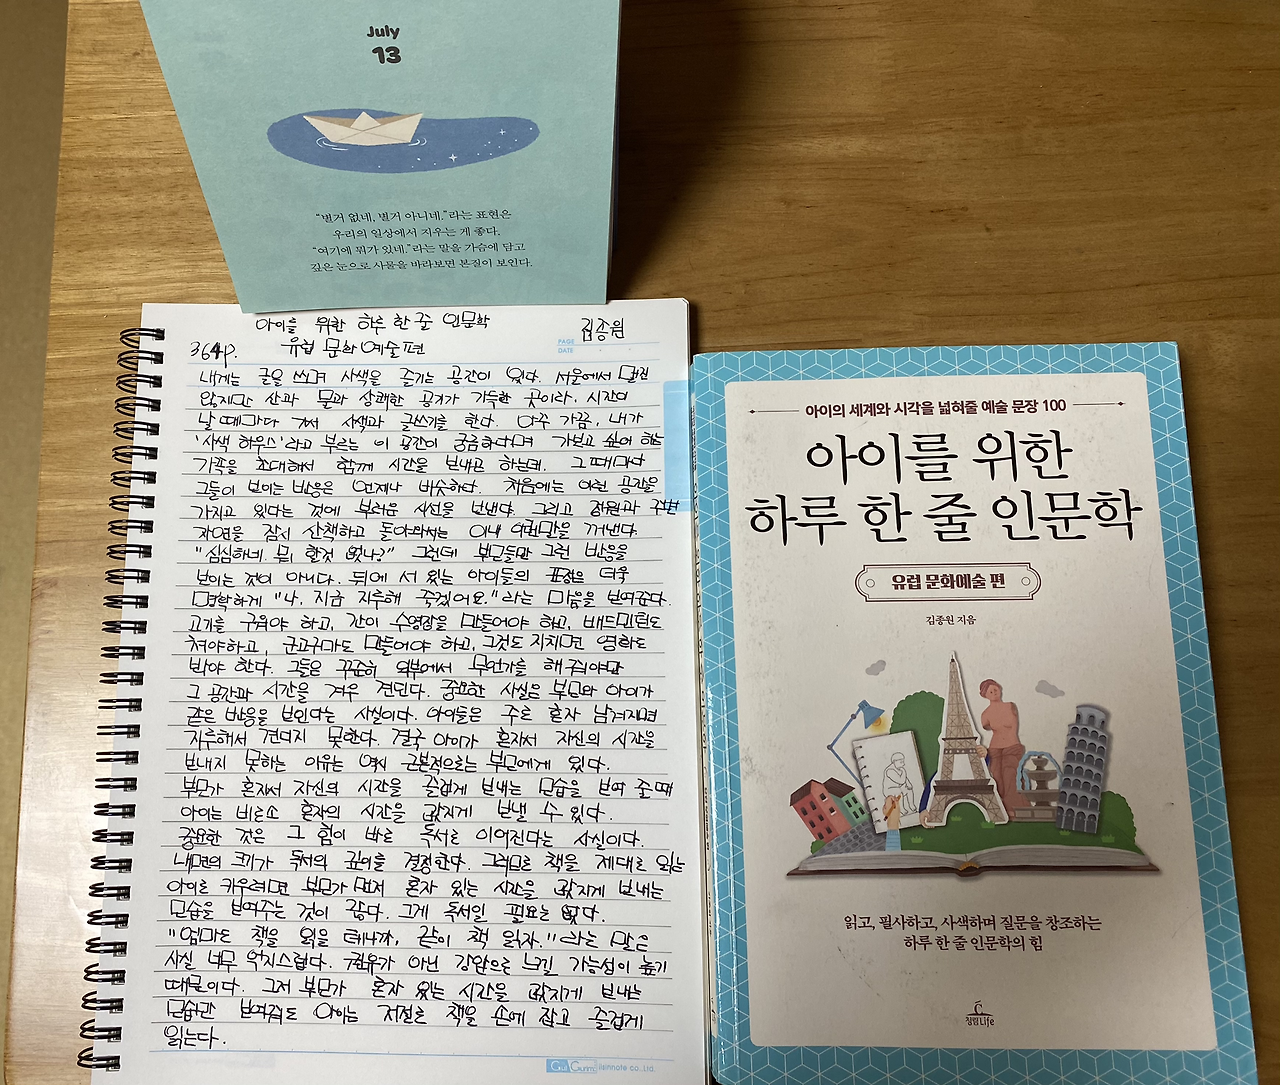 July
13
"별거 없네, 별거 아니네."라는 표현은
우리의 일상에서 지우는 게 좋다.
"여기에 뭐가 있네."라는 말을 가슴에 담고
깊은 눈으로 사물을 바라보면 본질이 보인다.
아이를 위한 하루 한 줄 인문학
김종원
364p.
유럽 문화예술편
PAGE
DATE
내게는 글을 쓰며 사색을 즐기는 공간이 있다. 서울에서 멀진
않지만 산과 물과 상쾌한 공기가 가득한 곳이라, 시간이
날 때마다 가서 사색과 글쓰기를 한다. 아주 가끔, 내가
'사색 하우스'라고 부르는 이 공간이 궁금하다며 가보고 싶어 하는
가족을 초대해서 함께 시간을 보내곤 하는데. 그때마다
그들이 보이는 반응은 언제나 비슷하다. 처음에는 이런 공간을
가지고 있다는 것에 부러운 시선을 보낸다. 그리고 정원과 주변
자연을 잠시 산책하고 돌아와서는 이내 이런말을 꺼낸다.
"심심하네. 뭐 할것 없나?" 그런데 부모들만 그런 반응을
보이는 것이 아니다. 뒤에 서 있는 아이들의 표정은 더욱
명확하게 "나, 지금 지루해 죽겠어요."라는 마음을 보여준다.
고기를 구워야 하고, 간이 수영장을 만들어야 하고, 배드민턴도
쳐야하고, 군고구마도 만들어야 하고, 그것도 지치면 영화도
봐야 한다. 그들은 꾸준히 외부에서 무언가를 해줘야만
그 공간과 시간을 겨우 견딘다. 중요한 사실은 부모와 아이가
같은 반응을 보인다는 사실이다. 아이들은 주로 혼자 남겨지면
지루해서 견디지 못한다. 결국 아이가 혼자서 자신의 시간을
보내지 못하는 이유는 역시 근본적으로는 부모에게 있다.
부모가 혼자서 자신의 시간을 즐겁게 보내는 모습을 보여 줄 때
아이는 비로소 혼자의 시간을 값지게 보낼 수 있다.
중요한 것은 그 힘이 바로 독서로 이어진다는 사실이다.
내면의 크기가 독서의 깊이를 결정한다. 그러므로 책을 제대로 읽는
아이로 키우려면 부모가 먼저 혼자 있는 시간을 값지게 보내는
모습을 보여주는 것이 같다. 그게 독서일 필요는 없다.
"엄마도 책을 읽을 테니까, 같이 책 읽자."라는 말은
사실 너무 억지스럽다. 권유가 아닌 강압으로 느낄 가능성이 높기
때문이다. 그저 부모가 혼자 있는 시간을 값지게 보내는
모습만 보여줘도 아이는 저절로 책을 손에 잡고 즐겁게
읽는다.
아이의 세계와 시각을 넓혀줄 예술 문장 100
아이를 위한
하루 한 줄 인문학
유럽 문화예술 편
김종원 지음
읽고, 필사하고, 사색하며 질문을 창조하는
하루 한 줄 인문학의 힘
청림Life